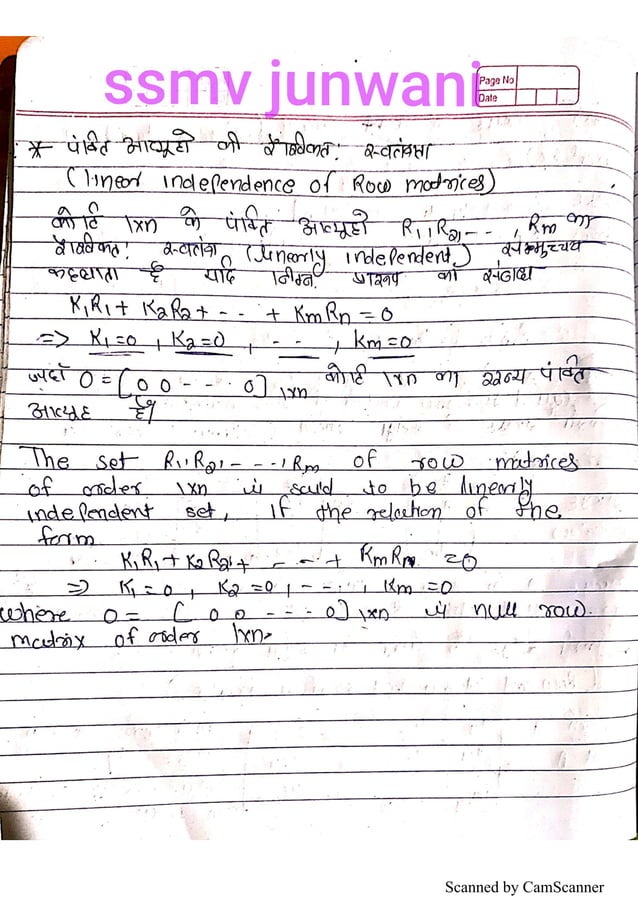 ssmv junwani
Page No
Date
* पंक्ति आव्यूहो की रैखिकत: स्वतंत्रता
(linear independence of Row matrices)
कोटि 1xn के पंक्ति आव्यूहो R1, R2, - - , Rm का
रैखिकत: स्वतंत्र (linearly independent) समुच्चय
कहलाता है यदि निम्न प्रारूप का संबंध
K1R1 + K2R2 + - - + KmRn = 0
=> K1=0 , K2=0 , - - , Km=0
जहाँ 0 = [0 0 - - - 0]1xn कोटि 1xn का शून्य पंक्ति
आव्यूह है।
The set R1, R2, - - -, Rm of row matrices
of order 1xn is said to be linearly
independent set, if the relation of the
form
K1R1 + K2R2 + - - - + KmRm = 0
=> K1 = 0 , K2 = 0 , - - - , Km = 0
where 0 = [ 0 0 - - - 0]1xn is null row
matrix of order 1xn.
Scanned by CamScanner